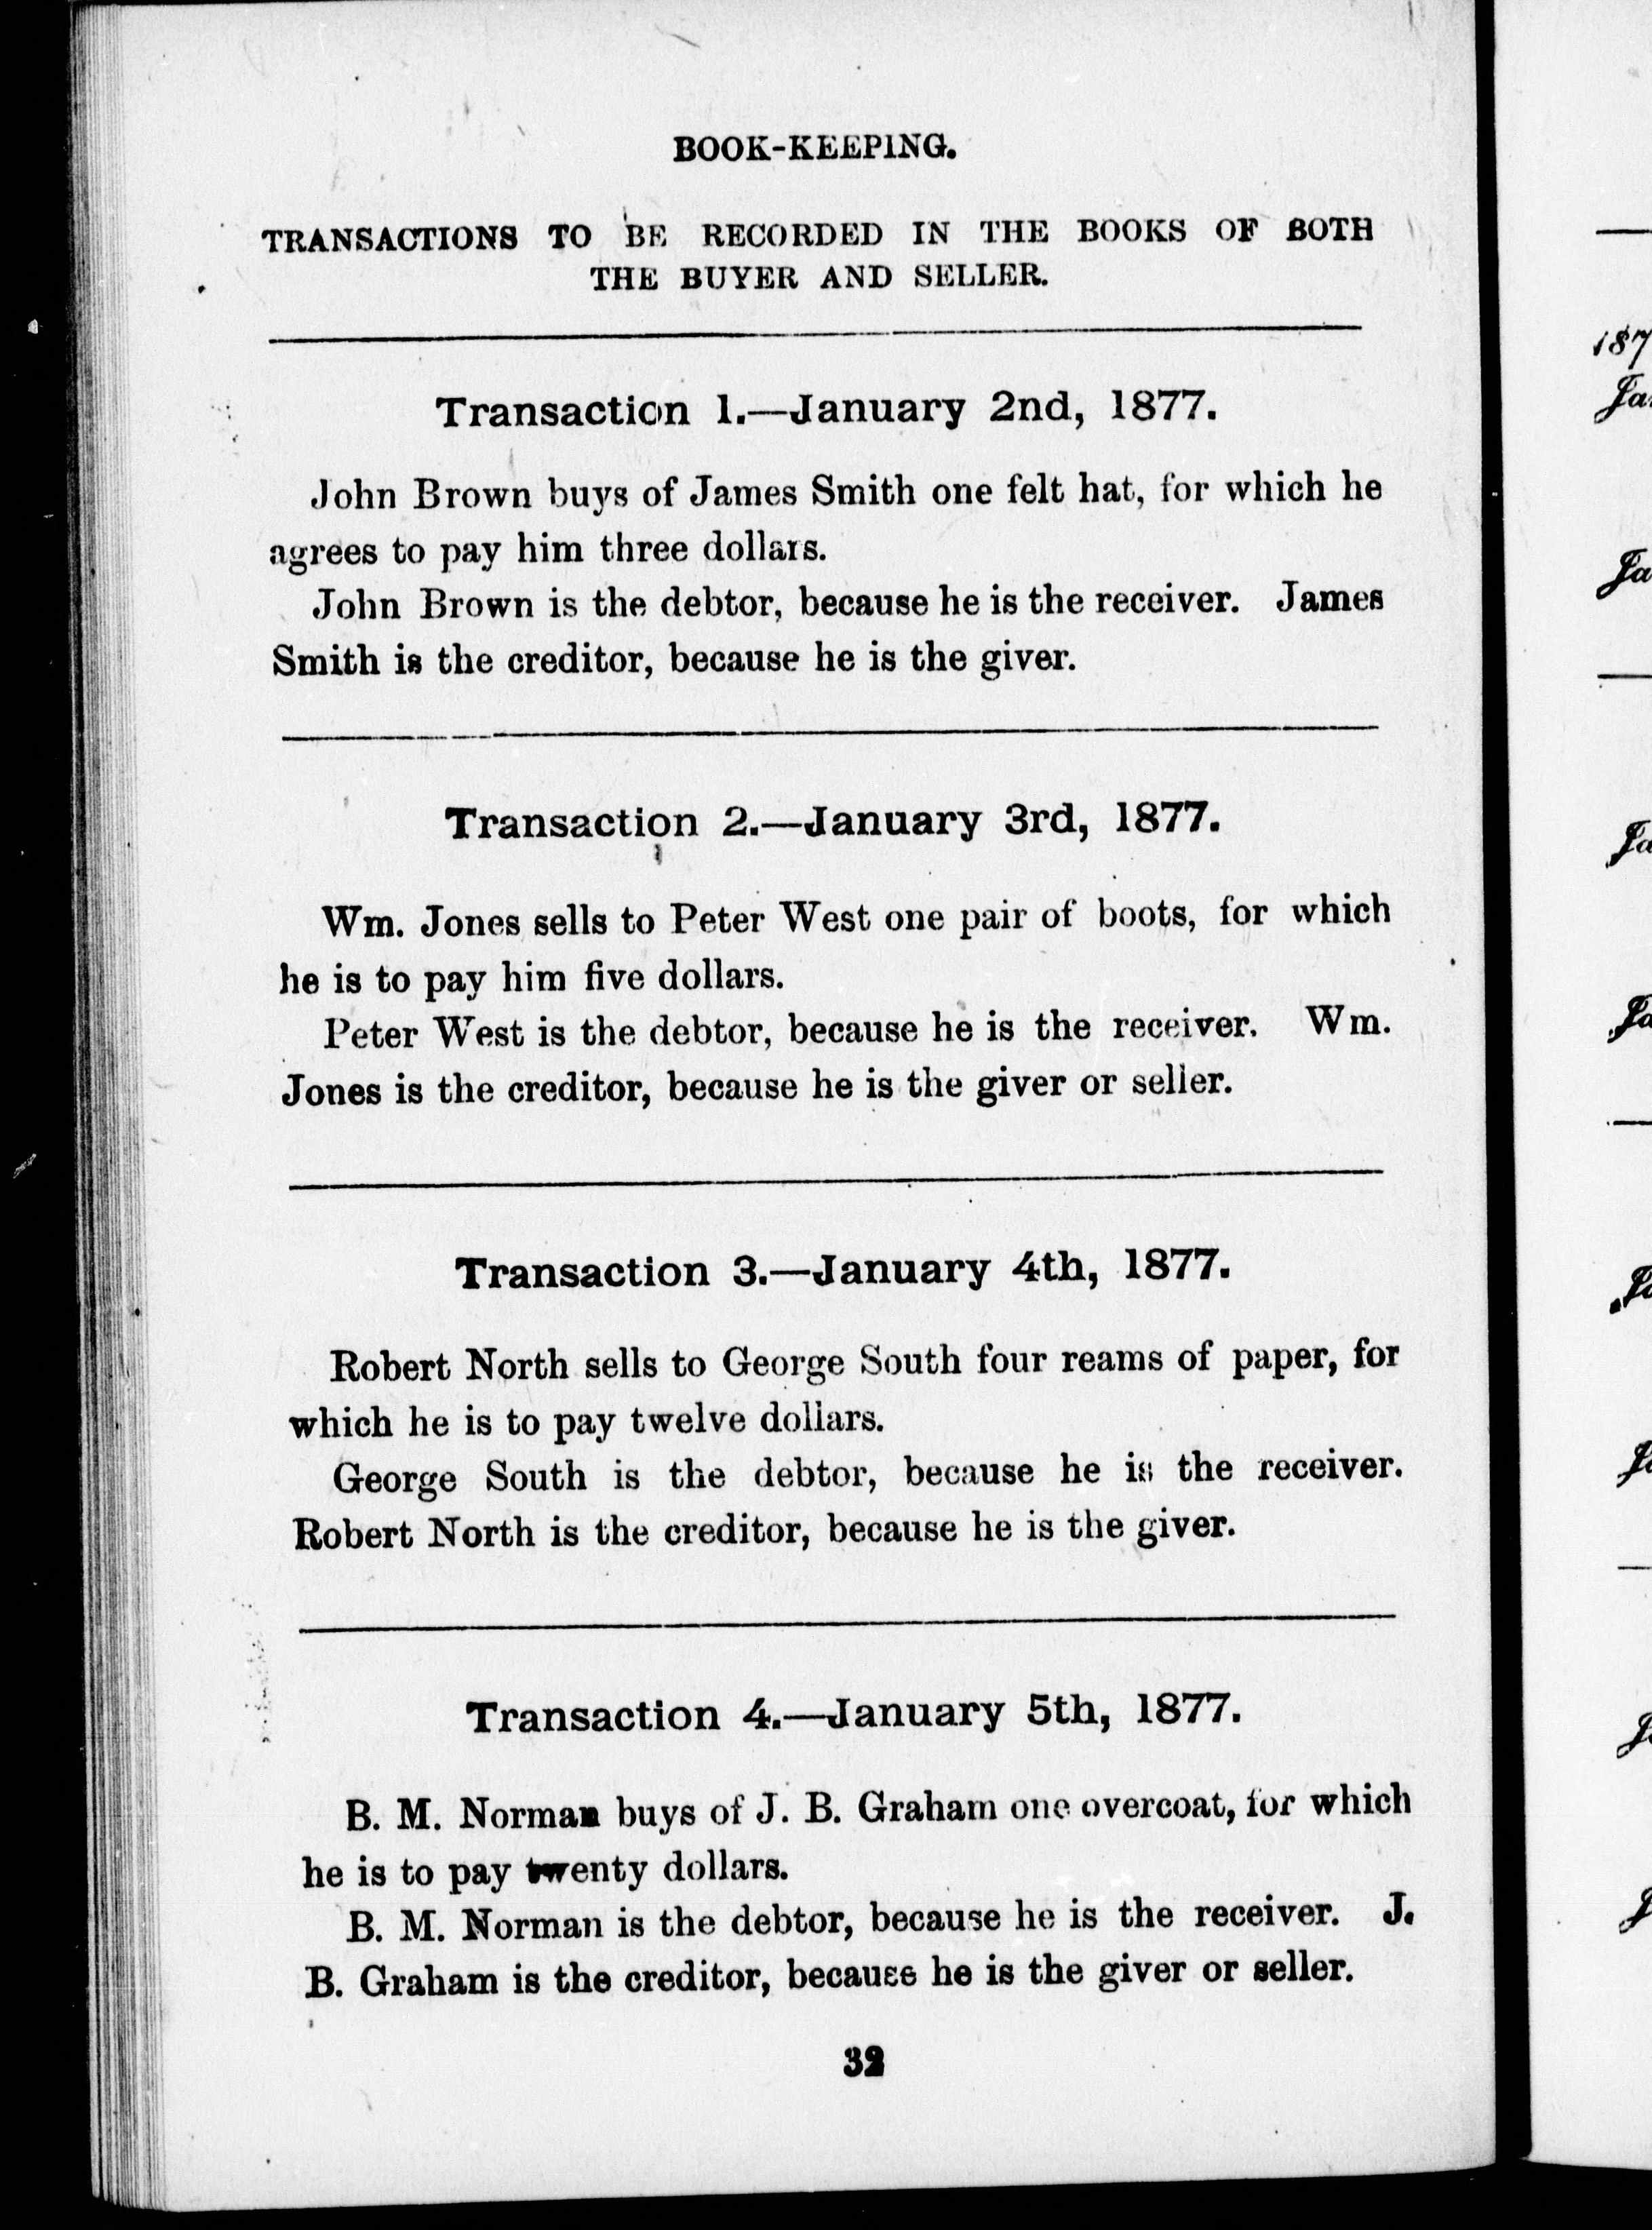 BOOK-KEEPING.
TRANSACTIONS TO BE RECORDED IN THE BOOKS OF BOTH
THE BUYER AND SELLER.
Transaction 1.—January 2nd, 1877.
John Brown buys of James Smith one felt hat, for which he
agrees to pay him three dollars.
John Brown is the debtor, because he is the receiver. James
Smith is the creditor, because he is the giver.
Transaction 2.—January 3rd, 1877.
Wm. Jones sells to Peter West one pair of boots, for which
he is to pay him five dollars.
Peter West is the debtor, because he is the receiver. Wm.
Jones is the creditor, because he is the giver or seller.
Transaction 3.—January 4th, 1877.
Robert North sells to George South four reams of paper, for
which he is to pay twelve dollars.
George South is the debtor, because he is the receiver.
Robert North is the creditor, because he is the giver.
Transaction 4.—January 5th, 1877.
B. M. Norman buys of J. B. Graham one overcoat, for which
he is to pay twenty dollars.
B. M. Norman is the debtor, because he is the receiver. J.
B. Graham is the creditor, because he is the giver or seller.
32